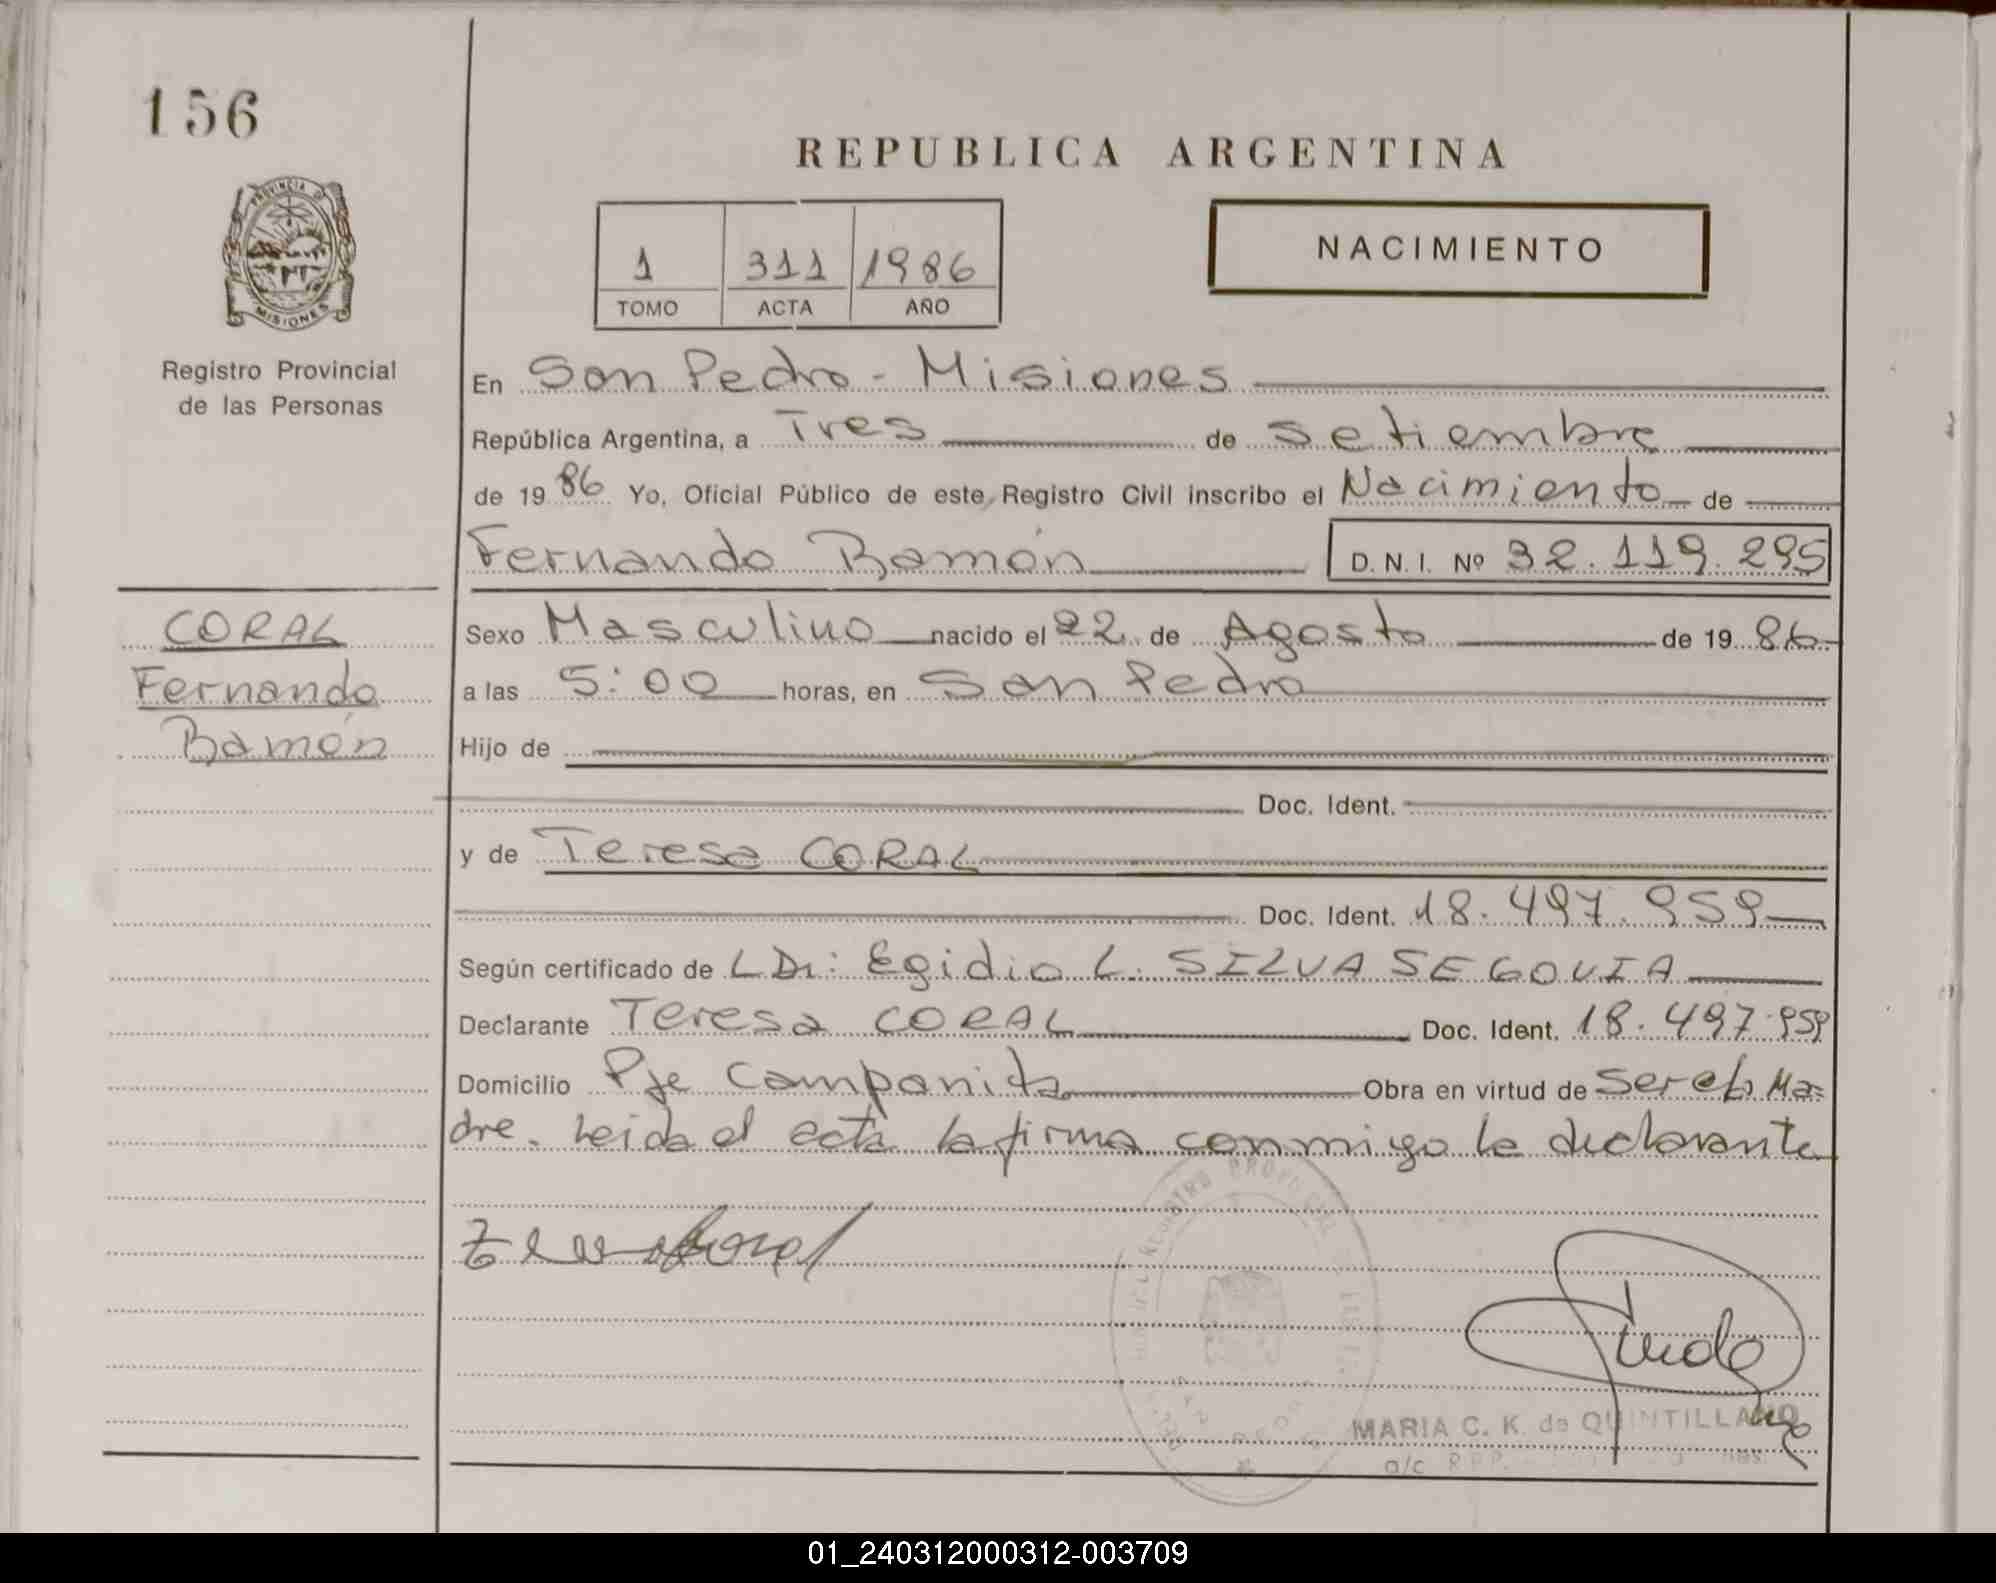 156
REPUBLICA ARGENTINA
PROVINCIA DE
MISIONES
Registro Provincial
de las Personas
1 311 1986
TOMO ACTA AÑO
NACIMIENTO
En San Pedro - Misiones
República Argentina, a Tres de Setiembre
de 1986 Yo, Oficial Público de este Registro Civil inscribo el Nacimiento de
Fernando Ramón D. N. I. Nº 32.119.295
CORAL
Fernando
Ramón
Sexo Masculino nacido el 22 de Agosto de 1986
a las 5:00 horas, en San Pedro
Hijo de
Doc. Ident.
y de Teresa CORAL
Doc. Ident. 18.497.959
Según certificado de Egidio L. SILVA SEGOVIA
Declarante Teresa CORAL Doc. Ident. 18.497.959
Domicilio Pje Campanita Obra en virtud de Ser la Ma=
dre. Leida el acta la firma conmigo la declarante
REGISTRO PROVINCIAL
MARIA C. K. de QUINTILLANO
a/c R.P.P.
01_240312000312-003709